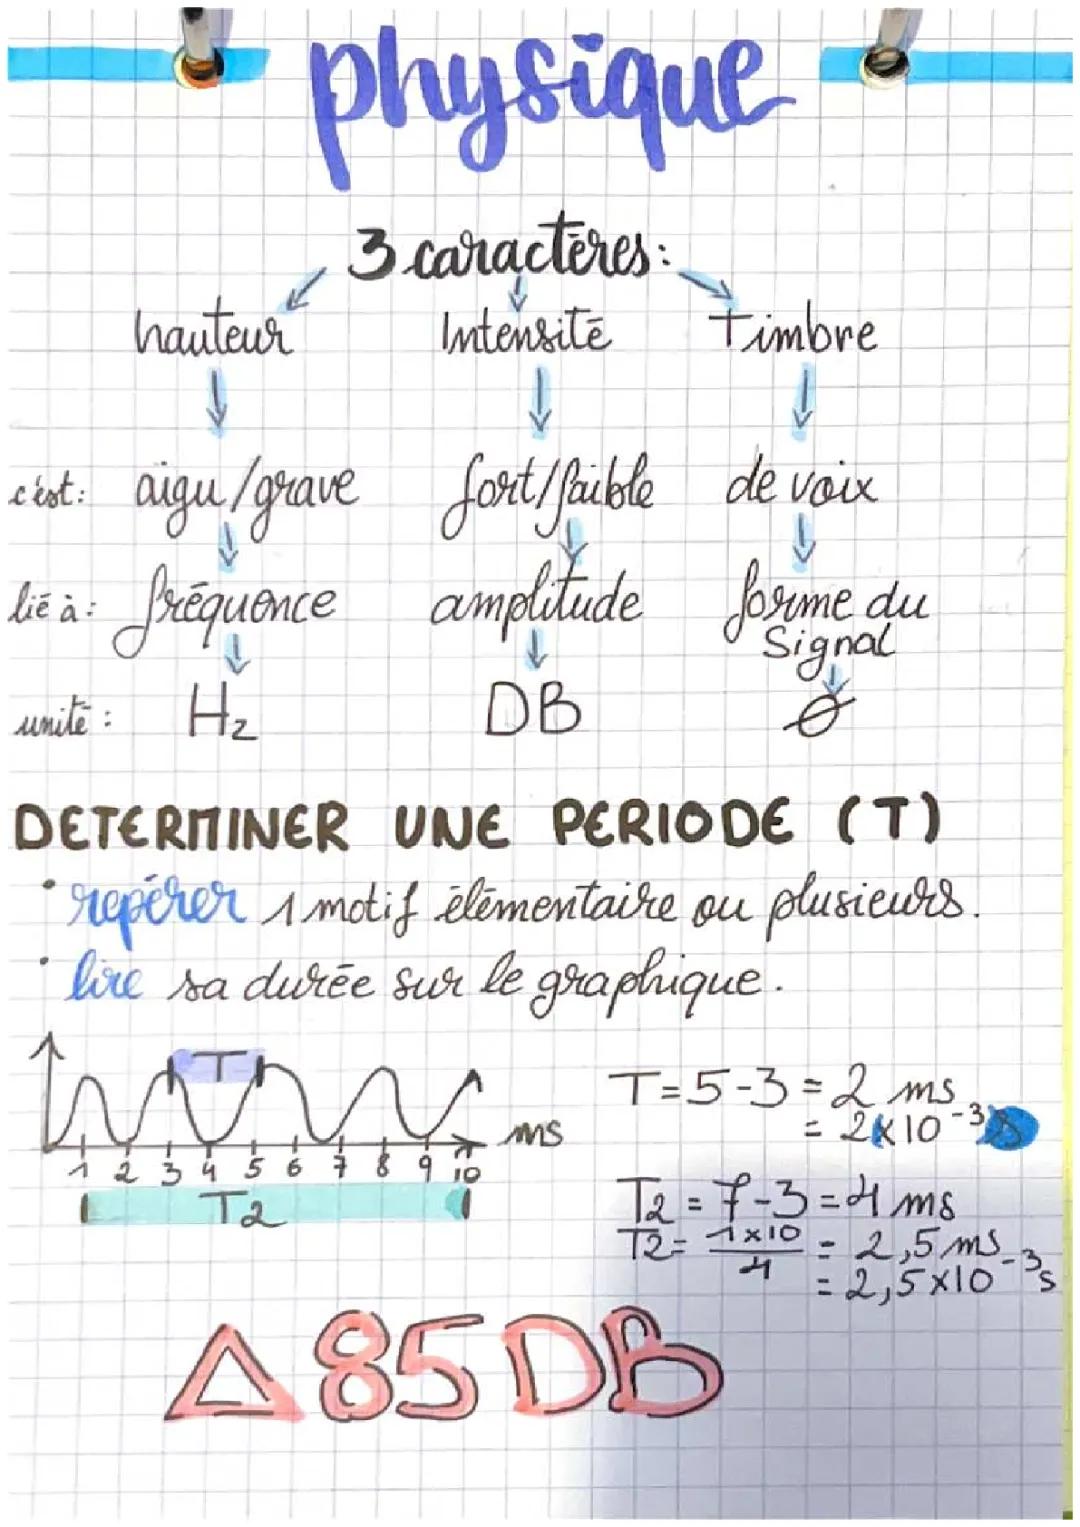 physique
3 caractères:
hauteur Intensité Timbre
c'est: aigu/grave fort/faible de voix
lié à: fréquence amplitude forme du
Signal
unité: Hz DB Ø
DETERMINER UNE PERIODE (T)
• repérer 1 motif élémentaire ou plusieurs.
• lire sa durée sur le graphique.
T
ms
1 2 3 4 5 6 7 8 9 10
T2
T=5-3=2 ms
= 2x10⁻³s
T2=7-3=4 ms
T2= 1x10/4 = 2,5 ms
= 2,5x10⁻³s
Δ 85 DB